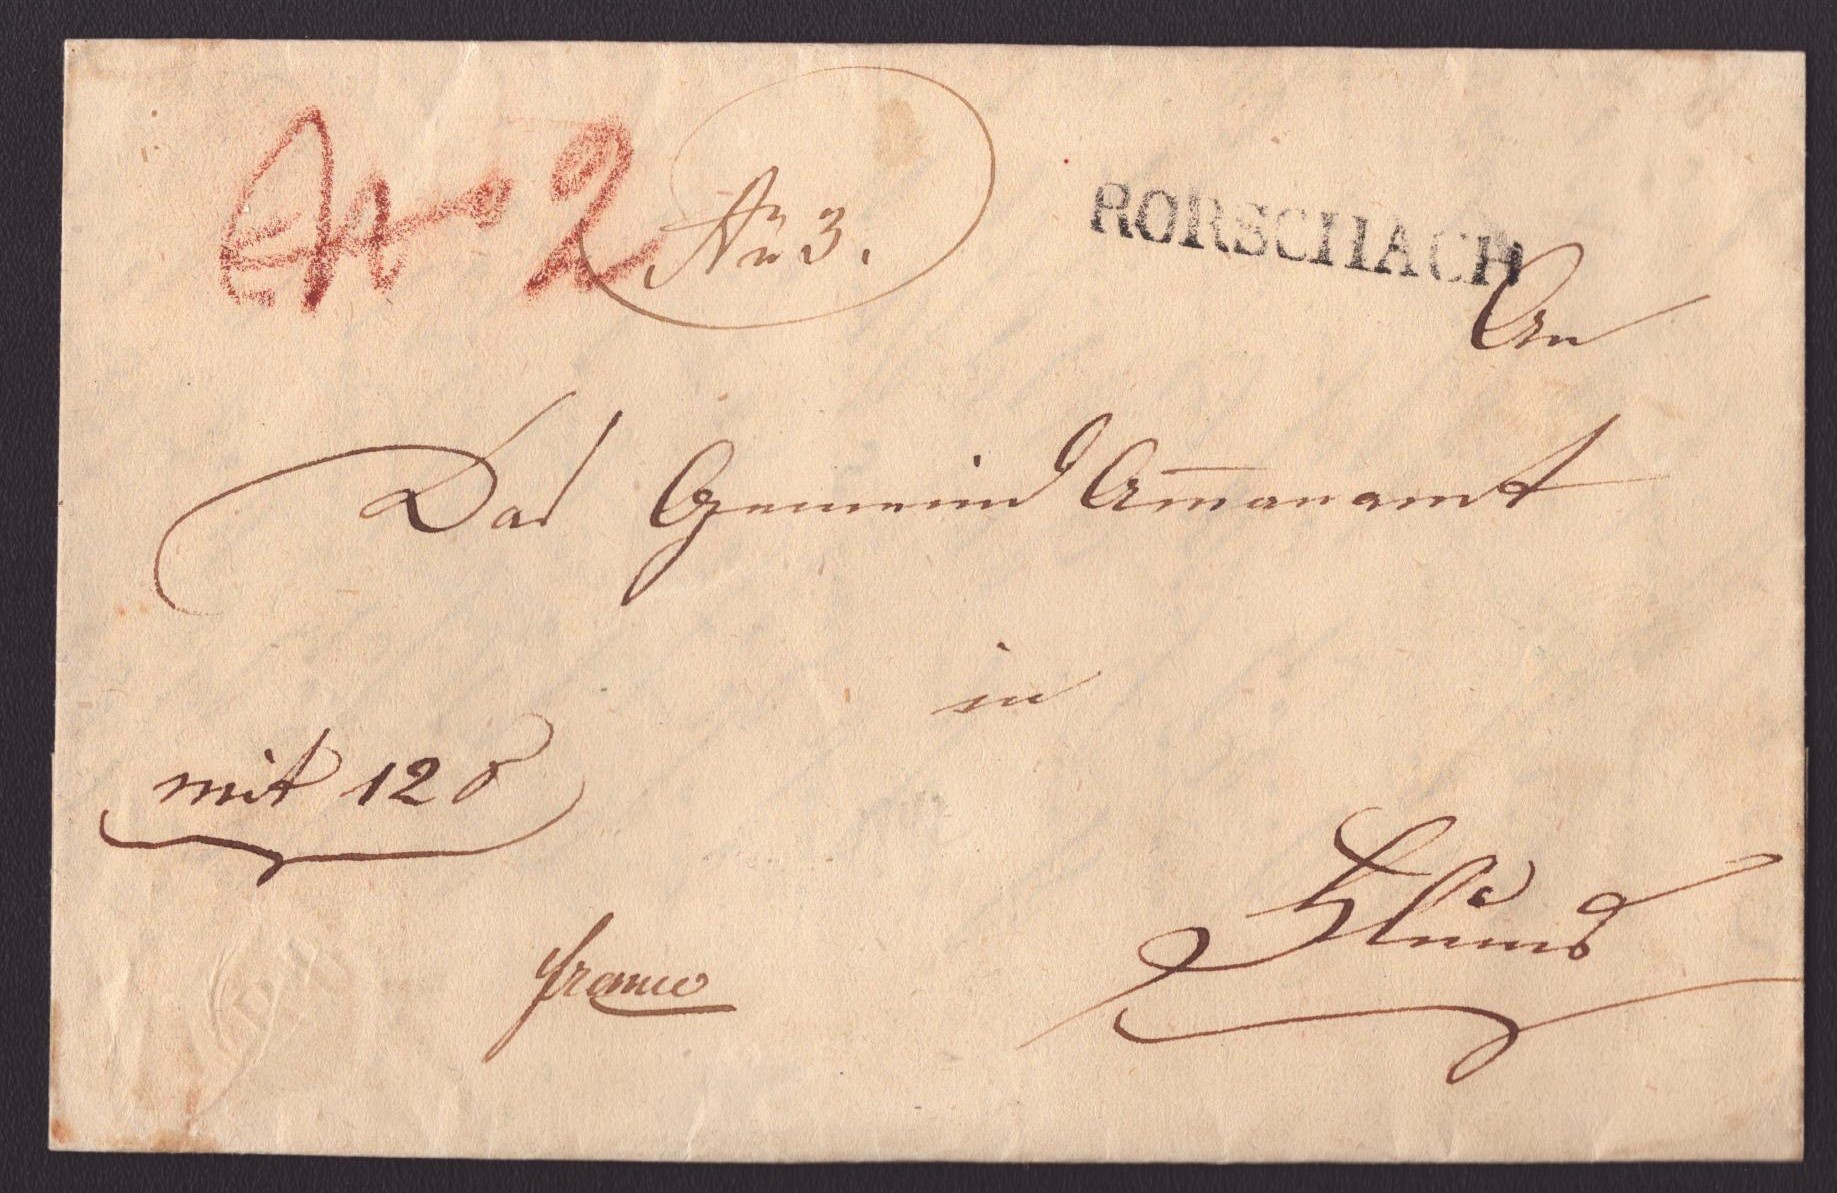 No 2
No 3.
RORSCHACH
An
Das Gemeind Am̅anamt
in
mit 12 δ
Flums
franco